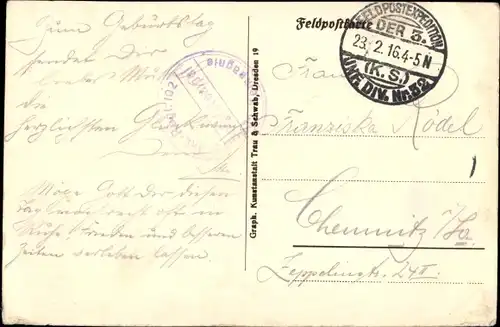 Zum Geburtstag
sendet Dir
liebes
die
herzlichsten Glückwünsche
Dein
Möge Gott Dir diesen
Tag noch recht oft in
Ruhe, Frieden und besseren
Zeiten verleben lassen.
Graph. Kunstanstalt Trau & Schwab, Dresden 19
Feldpostkarte
FELDPOSTEXPEDITION
DER 3.
23. 2. 16. 4-5 N
(K. S.)
INF. DIV. Nr. 32
Frau
Franziska Rödel
Chemnitz i/Sa.
Zeppelinstr. 24 II.